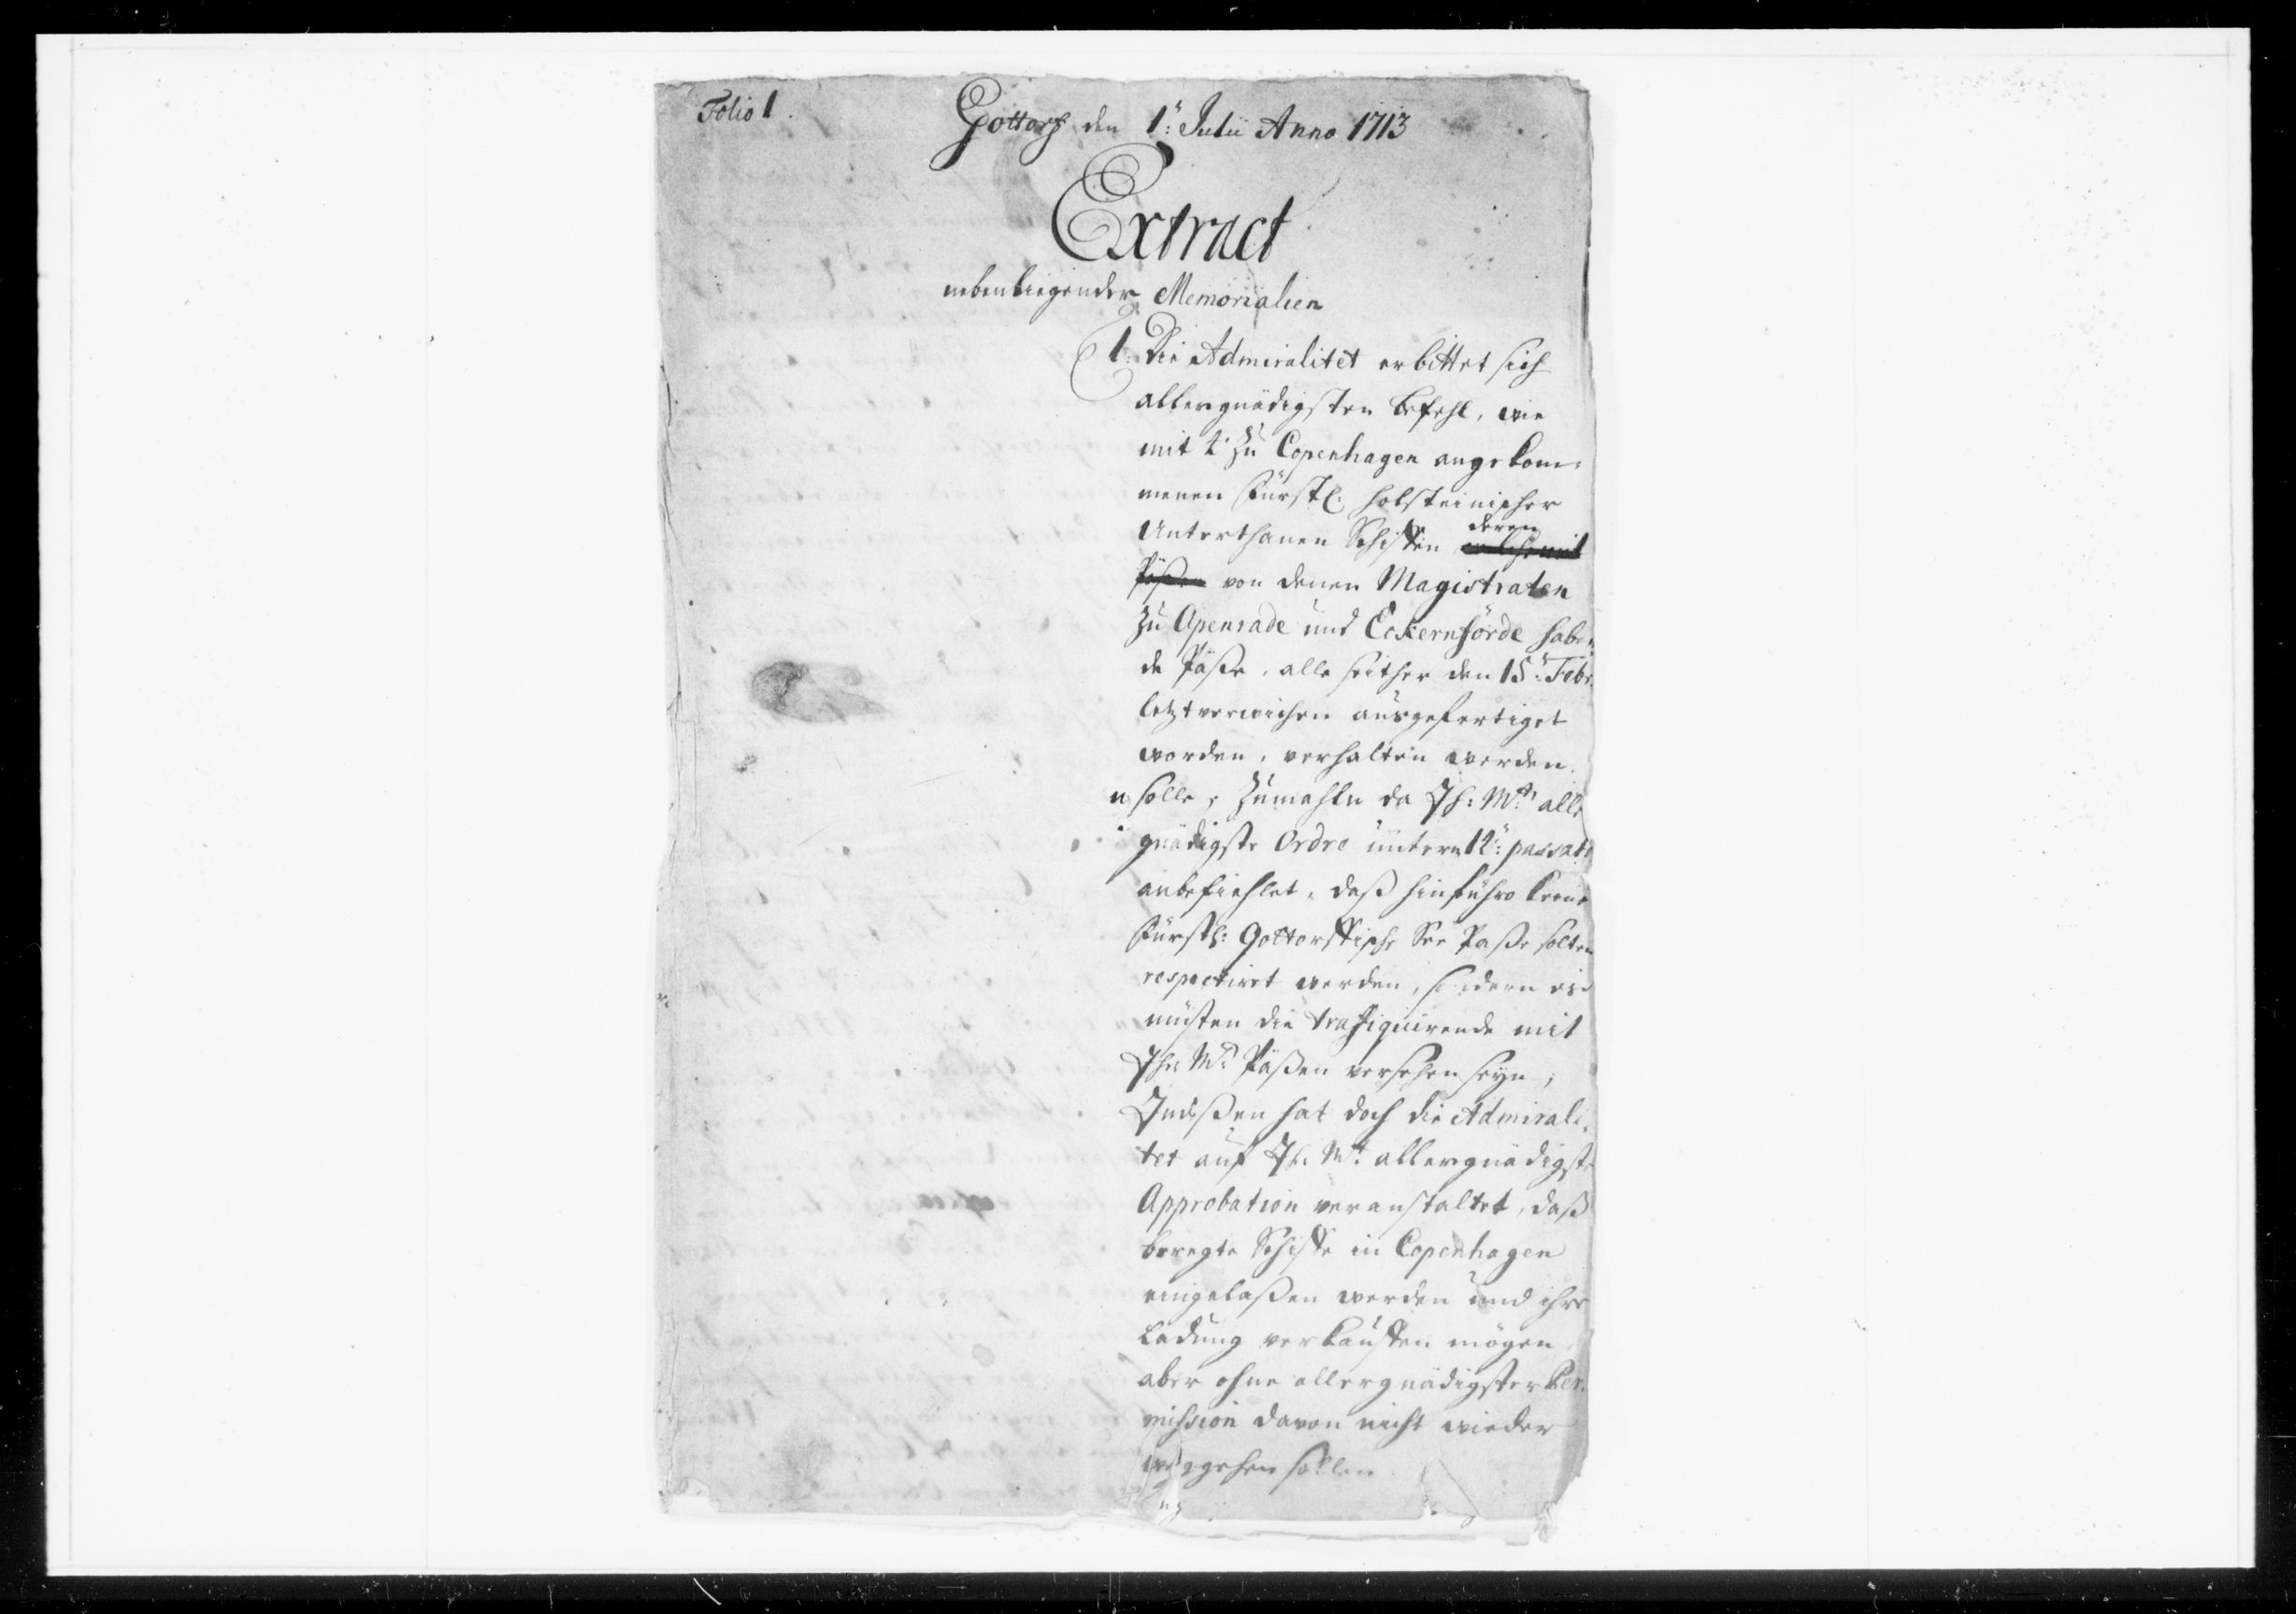 Folio 1.
Gottorf den 1: Julii Anno 1713
Extract
nebenliegender Memorialien
1. Die Admiralitet erbittet sich
allergnädigsten befehl, wie
mit 2 zu Copenhagen angekom¬
menen Fürstl: holsteinischer
Unterthanen Schiffen deren
welche mit
Päßen von denen Magistraten
zu Apenrade und Eckernförde haben¬
de Päße, alle seither den 15: Febr.
letzt verwichen ausgefertiget
worden, verhalten werden
solle, zumahln da Ih: Mtt: alle
gnädigste Ordre unterm 12: passato
anbefiehlet, daß hinführo keine
Fürstl: Gottorffische See Paße solten
respectiret werden, sondern es
müsten die trafiquirende mit
Ihr Mt: Päßen versehen seyn,
Indeßen hat doch die Admirali¬
tet auf Ih: Mt: allergnädigste
Approbation veranstaltet, daß
beregte Schiffe in Copenhagen
eingelaßen werden und ihre
Ladung verkauffen mögen
aber ohne allergnädigster Per¬
mission davon nicht wieder
weggehen sollen